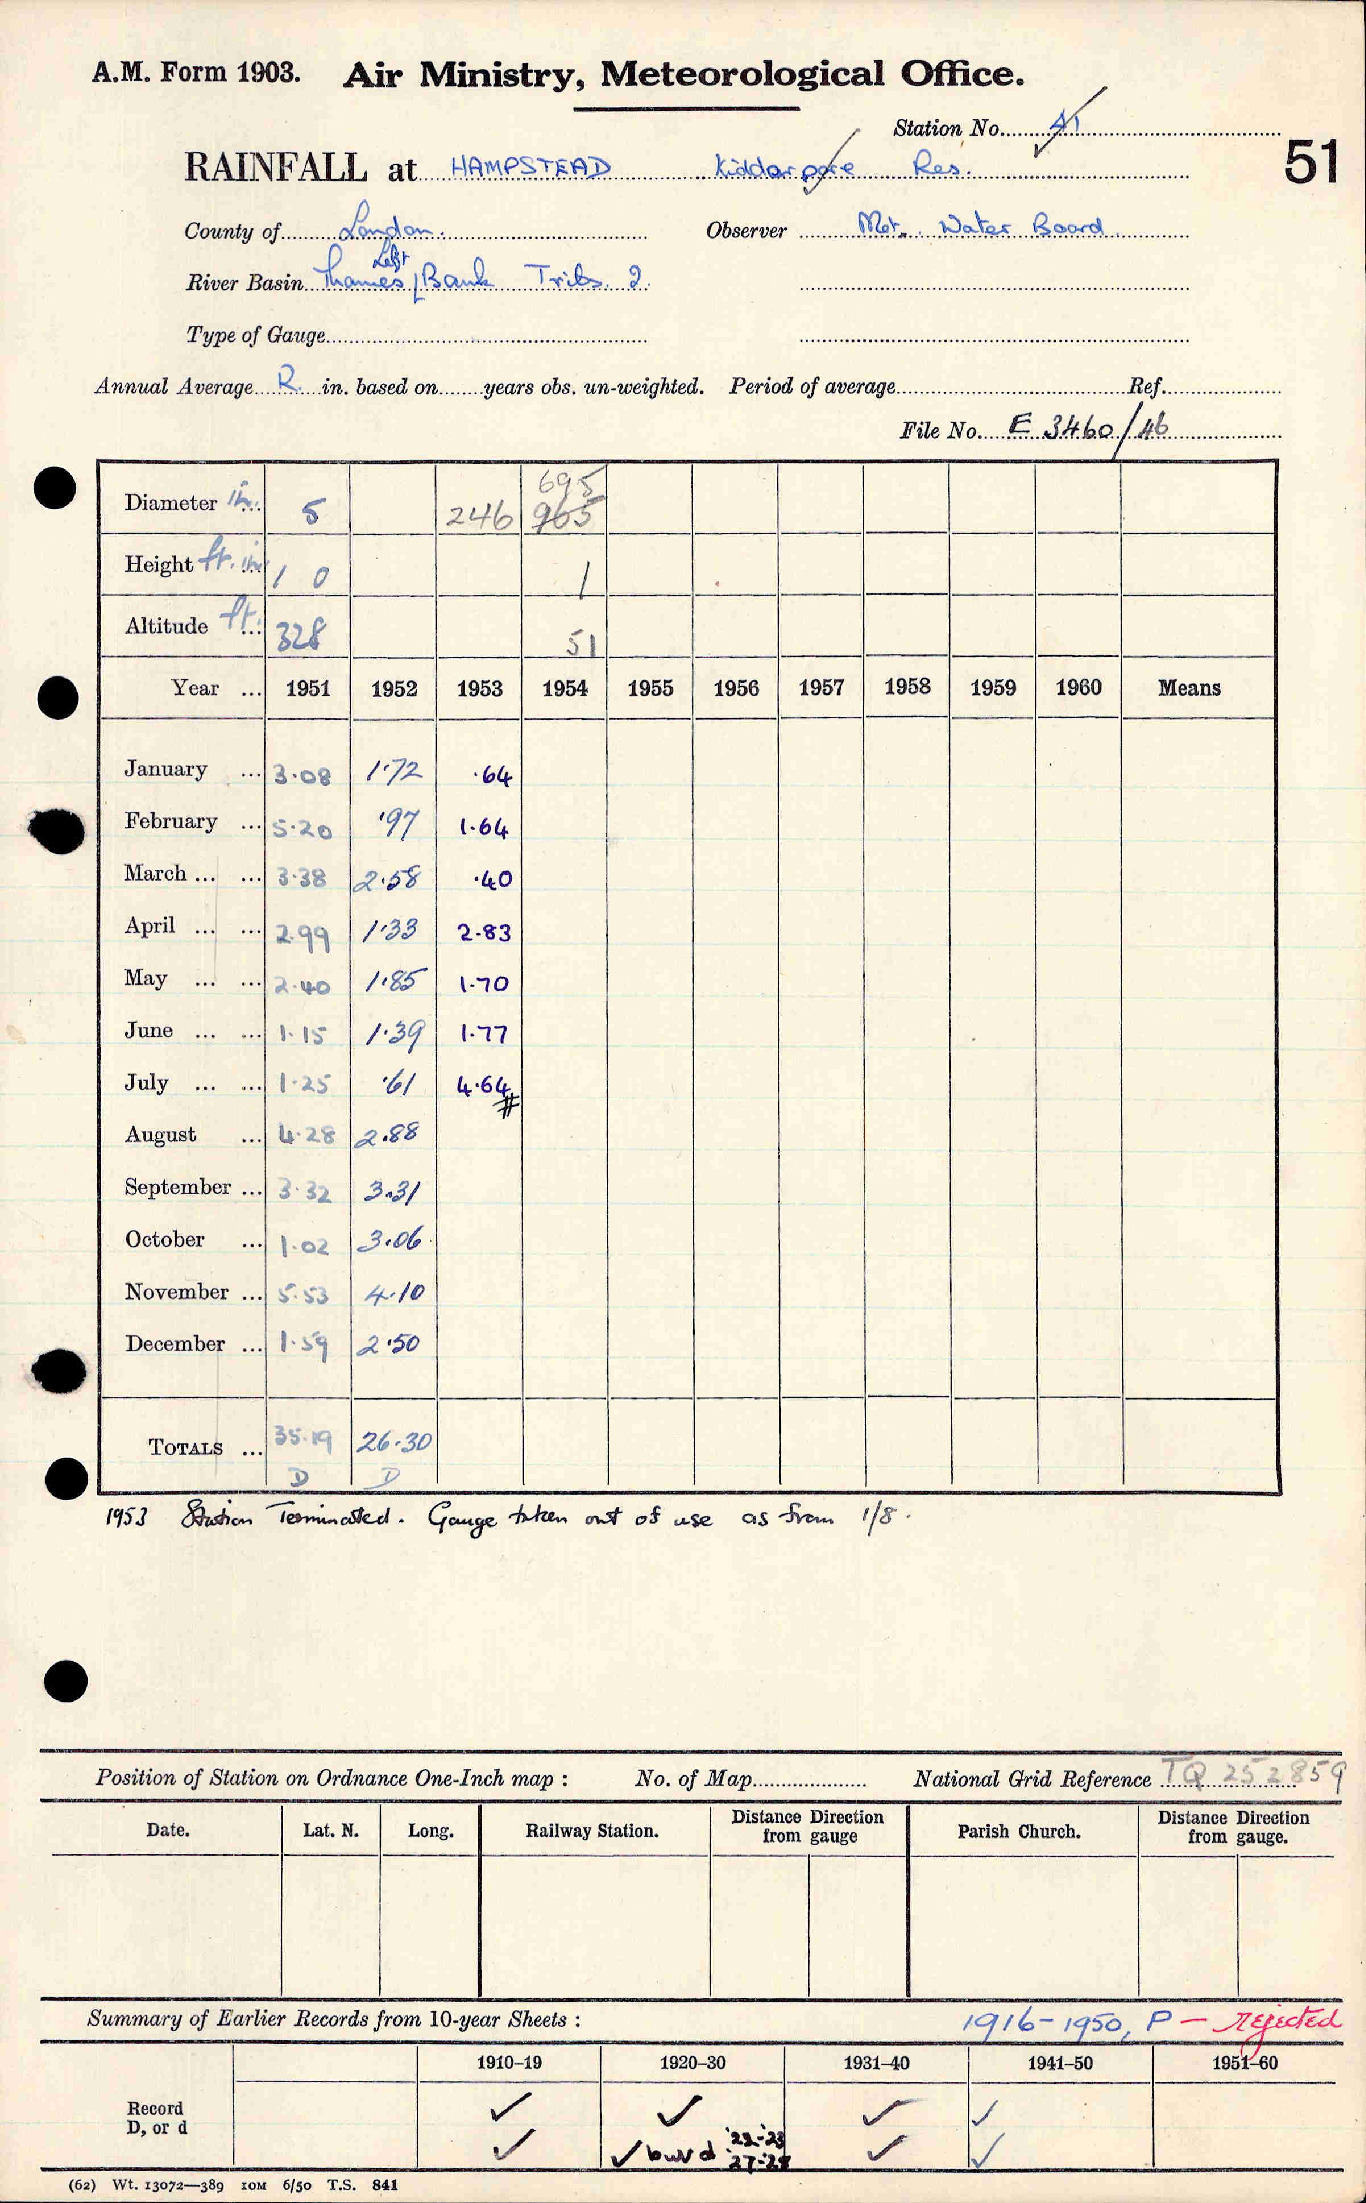 A.M. Form 1903. Air Ministry, Meteorological Office.
Station No. 41
51
RAINFALL at HAMPSTEAD Kidderpore Res.
County of London. Observer Met. Water Board
River Basin Thames Left Bank Tribs. 2.
Type of Gauge
Annual Average R. in. based on years obs. un-weighted. Period of average Ref.
File No. E 3460/46
695
Diameter in. 5 246 965
Height ft. in. 1 0 1
Altitude ft. 328 51
Year ... 1951 1952 1953 1954 1955 1956 1957 1958 1959 1960 Means
January ... 3.08 1.72 .64
February ... 5.20 .97 1.64
March ... ... 3.38 2.58 .40
April ... ... 2.99 1.33 2.83
May ... ... 2.40 1.85 1.70
June ... ... 1.15 1.39 1.77
July ... ... 1.25 .61 4.64
#
August ... 4.28 2.88
September ... 3.32 3.31
October ... 1.02 3.06
November ... 5.53 4.10
December ... 1.59 2.50
TOTALS ... 35.19 26.30
D D
1953 Station Terminated. Gauge taken out of use as from 1/8.
Position of Station on Ordnance One-Inch map : No. of Map National Grid Reference TQ 252859
Date. Lat. N. Long. Railway Station. Distance from gauge Direction Parish Church. Distance from gauge. Direction
Summary of Earlier Records from 10-year Sheets : 1916-1950, P — rejected
1910–19 1920–30 1931–40 1941–50 1951–60
Record ✓ ✓ ✓ ✓
D, or d ✓ ✓ but d '22-'23 ✓ ✓
'27-'28
(62) Wt. 13072—389 10M 6/50 T.S. 841